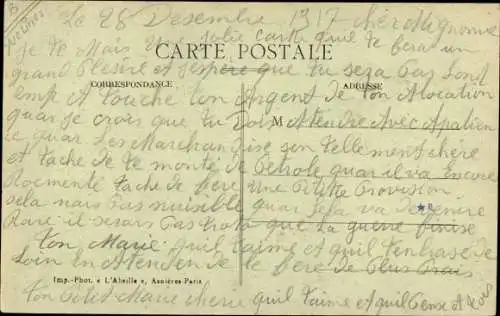 Le 28 Desembre 1317 chér Mignonne
je te Mais Une jolie carte quil te bera un
CARTE POSTALE
grand Plesire et jespere que tu sera Pas Lond
CORRESPONDANCE
ADRESSE
emp a touche ton Argent de ton Alocation
quar je crois que tu Dois Atendre Avec
M
quar Les Marchandise son tellement chère
et tache de te monté de Petrole quar il va encore
tache de bere Une Petite Provision
sela nais Pas nuisible quar sela va Devenire
Rare il serais Pas que La guerre finise
ton Marie quil taime et quil tenbrase de
Loin en Atendent de te bere de Plus Prais
Imp.-Phot. « L'Abeille », Asnières-Paris
ton Petit Marie cherie quil taime et quil Pense A